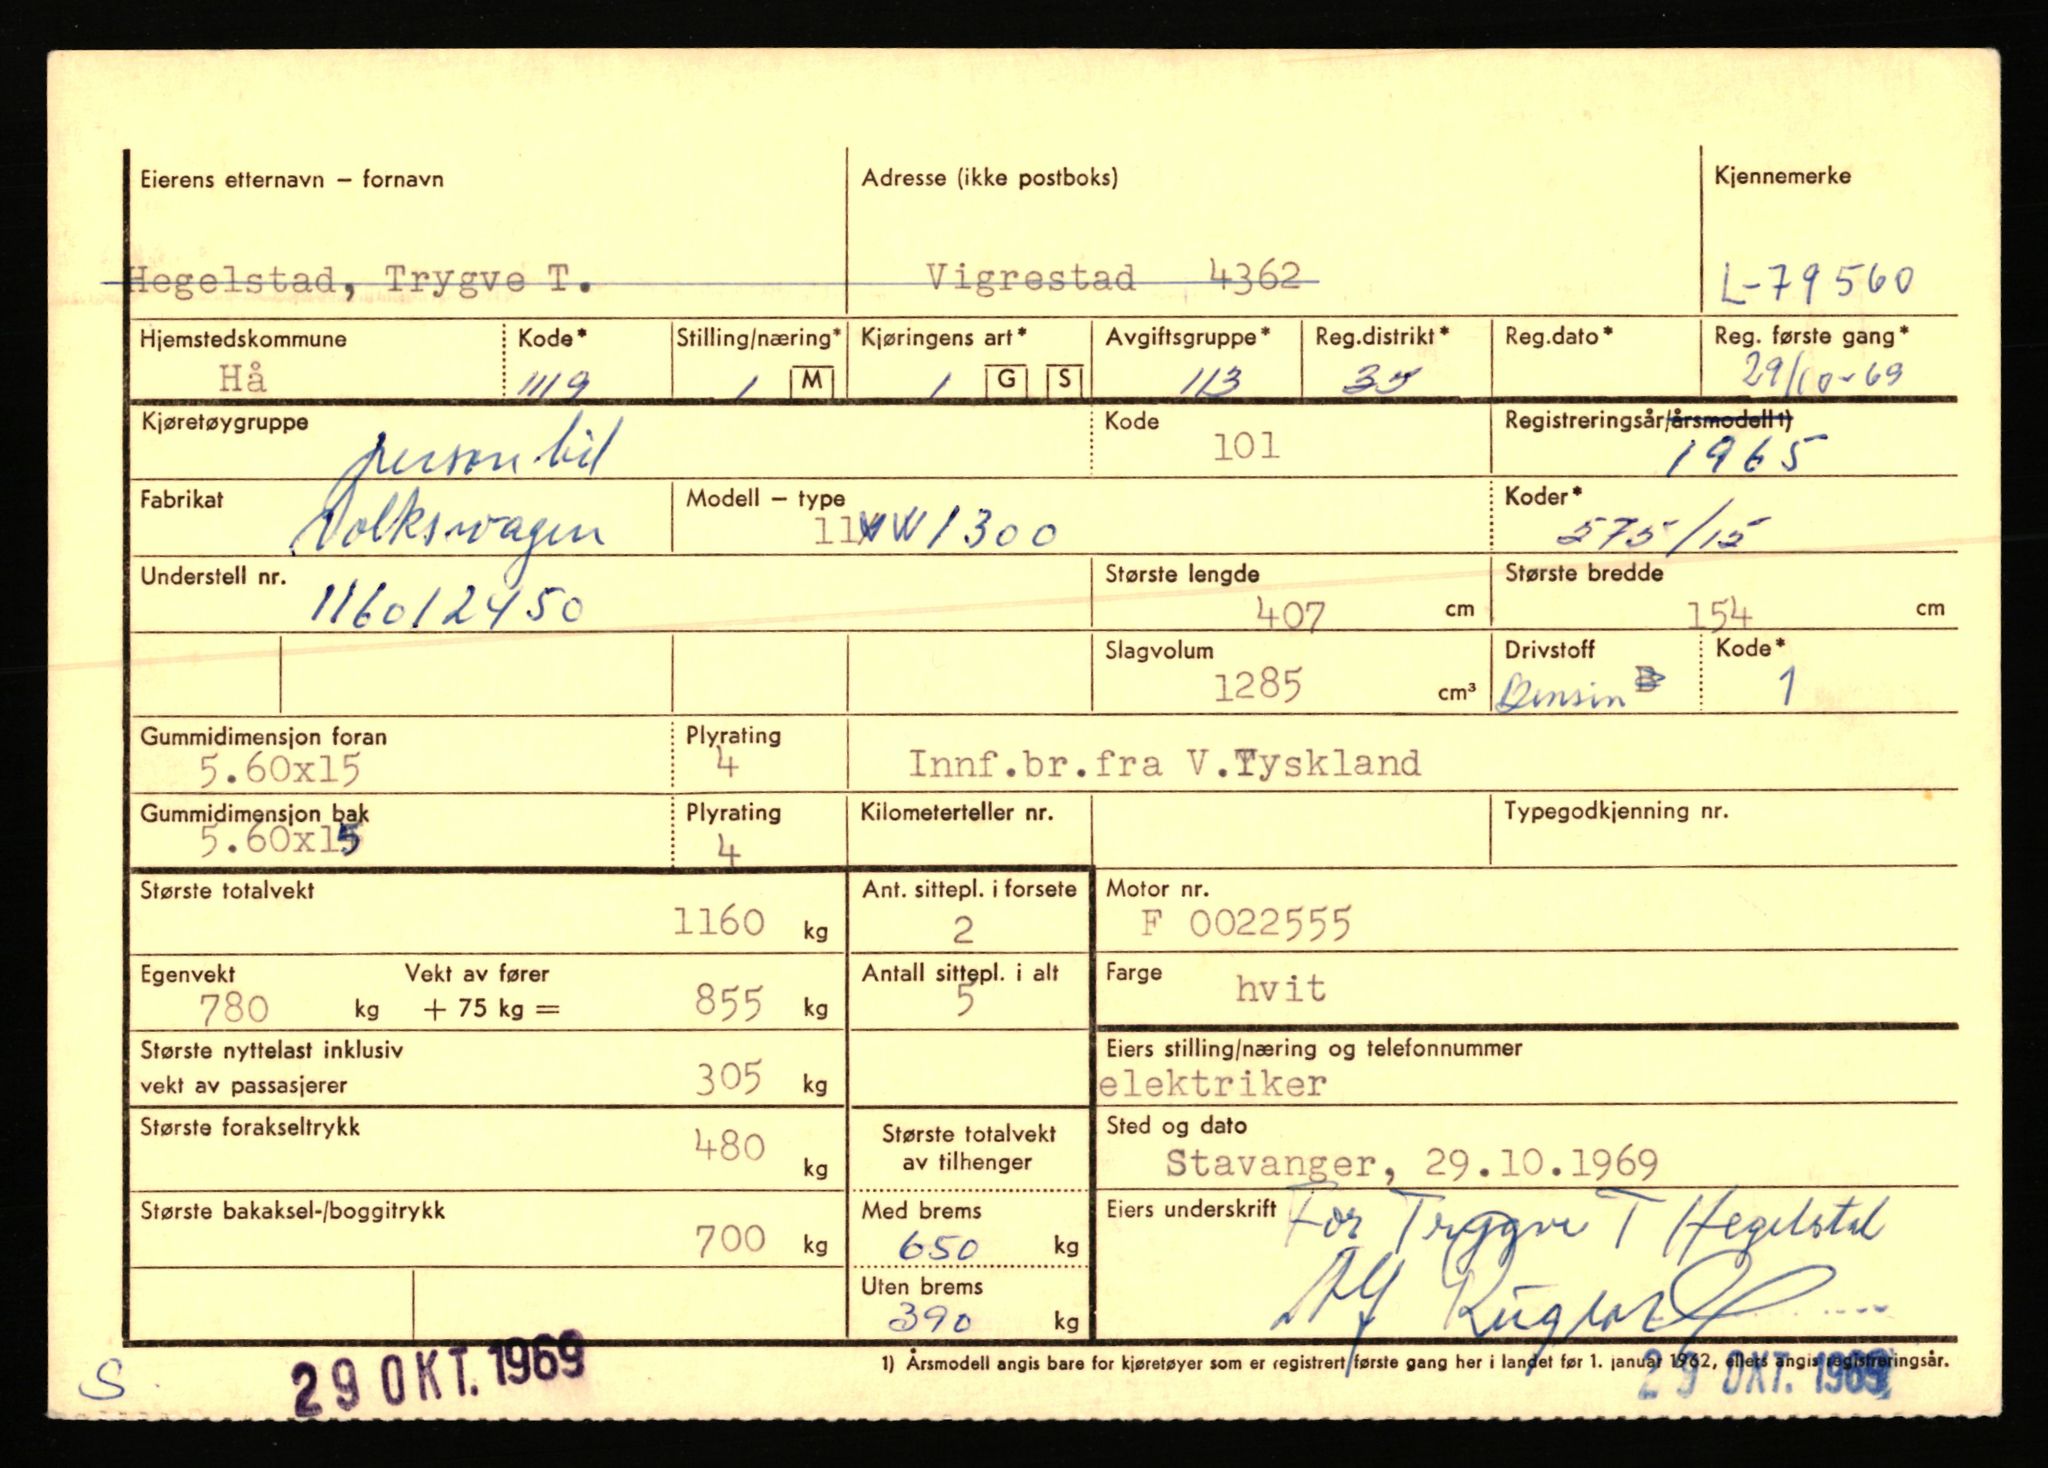 Eierens etternavn – fornavn
Adresse (ikke postboks)
Kjennemerke
Hegelstad, Trygve T.
Vigrestad 4362
L-79560
Hjemstedskommune
Kode*
Stilling/næring*
Kjøringens art*
Avgiftsgruppe*
Reg.distrikt*
Reg.dato*
Reg. første gang*
Hå
1119
1 M
1 G S
113
35
29/10-69
Kjøretøygruppe
personbil
Kode
101
Registreringsår/årsmodell 1)
1965
Fabrikat
Volkswagen
Modell – type
11 VW 1300
Koder*
575/15
Understell nr.
116012450
Største lengde
407 cm
Største bredde
154 cm
Slagvolum
1285 cm³
Drivstoff
Bensin B
Kode*
1
Gummidimensjon foran
5.60x15
Plyrating
4
Innf.br.fra V.Tyskland
Gummidimensjon bak
5.60x15
Plyrating
4
Kilometerteller nr.
Typegodkjenning nr.
Største totalvekt
1160 kg
Ant. sittepl. i forsete
2
Motor nr.
F 0022555
Egenvekt
780 kg
Vekt av fører
+ 75 kg =
855 kg
Antall sittepl. i alt
5
Farge
hvit
Største nyttelast inklusiv
vekt av passasjerer
305 kg
Eiers stilling/næring og telefonnummer
elektriker
Største forakseltrykk
480 kg
Største totalvekt
av tilhenger
Sted og dato
Stavanger, 29.10.1969
Største bakaksel-/boggitrykk
700 kg
Med brems
650 kg
Eiers underskrift
For Trygve T Hegelstad
Uten brems
390 kg
1) Årsmodell angis bare for kjøretøyer som er registrert første gang her i landet før 1. januar 1962, ellers angis registreringsår.
S
29 OKT. 1969
29 OKT. 1969